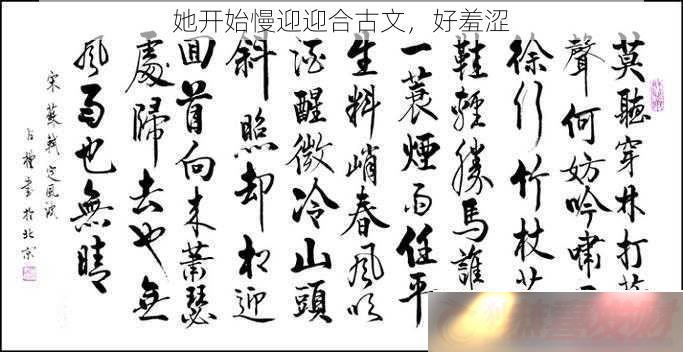 她开始慢迎迎合古文，好羞涩
莫聽穿林打
聲何妨吟嘯
徐行竹杖
鞋輕勝馬誰
一蓑煙雨任平
生料峭春風吹
酒醒微冷山頭
斜照却相迎
回首向来蕭瑟
處歸去也無
風雨也無晴
宋蘇軾定風波
書於北京